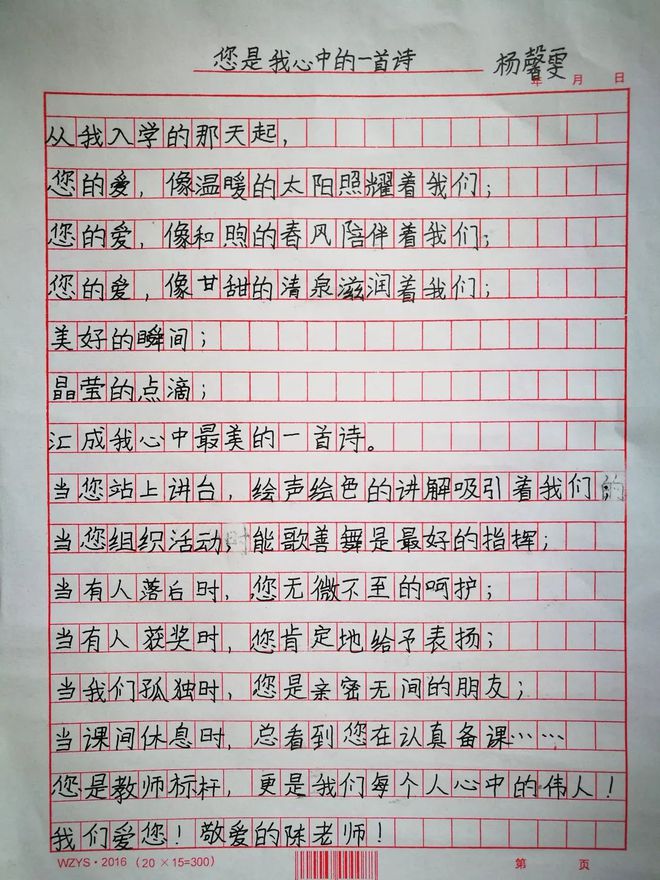 您是我心中的一首诗 杨馨雯
年 月 日
从我入学的那天起，
您的爱，像温暖的太阳照耀着我们；
您的爱，像和煦的春风陪伴着我们；
您的爱，像甘甜的清泉滋润着我们；
美好的瞬间；
晶莹的点滴；
汇成我心中最美的一首诗。
当您站上讲台，绘声绘色的讲解吸引着我们的
当您组织活动，能歌善舞是最好的指挥；
当有人落后时，您无微不至的呵护；
当有人获奖时，您肯定地给予表扬；
当我们孤独时，您是亲密无间的朋友；
当课间休息时，总看到您在认真备课……
您是教师标杆，更是我们每个人心中的伟人！
我们爱您！敬爱的陈老师！
WZYS·2016（20×15=300） 第 页